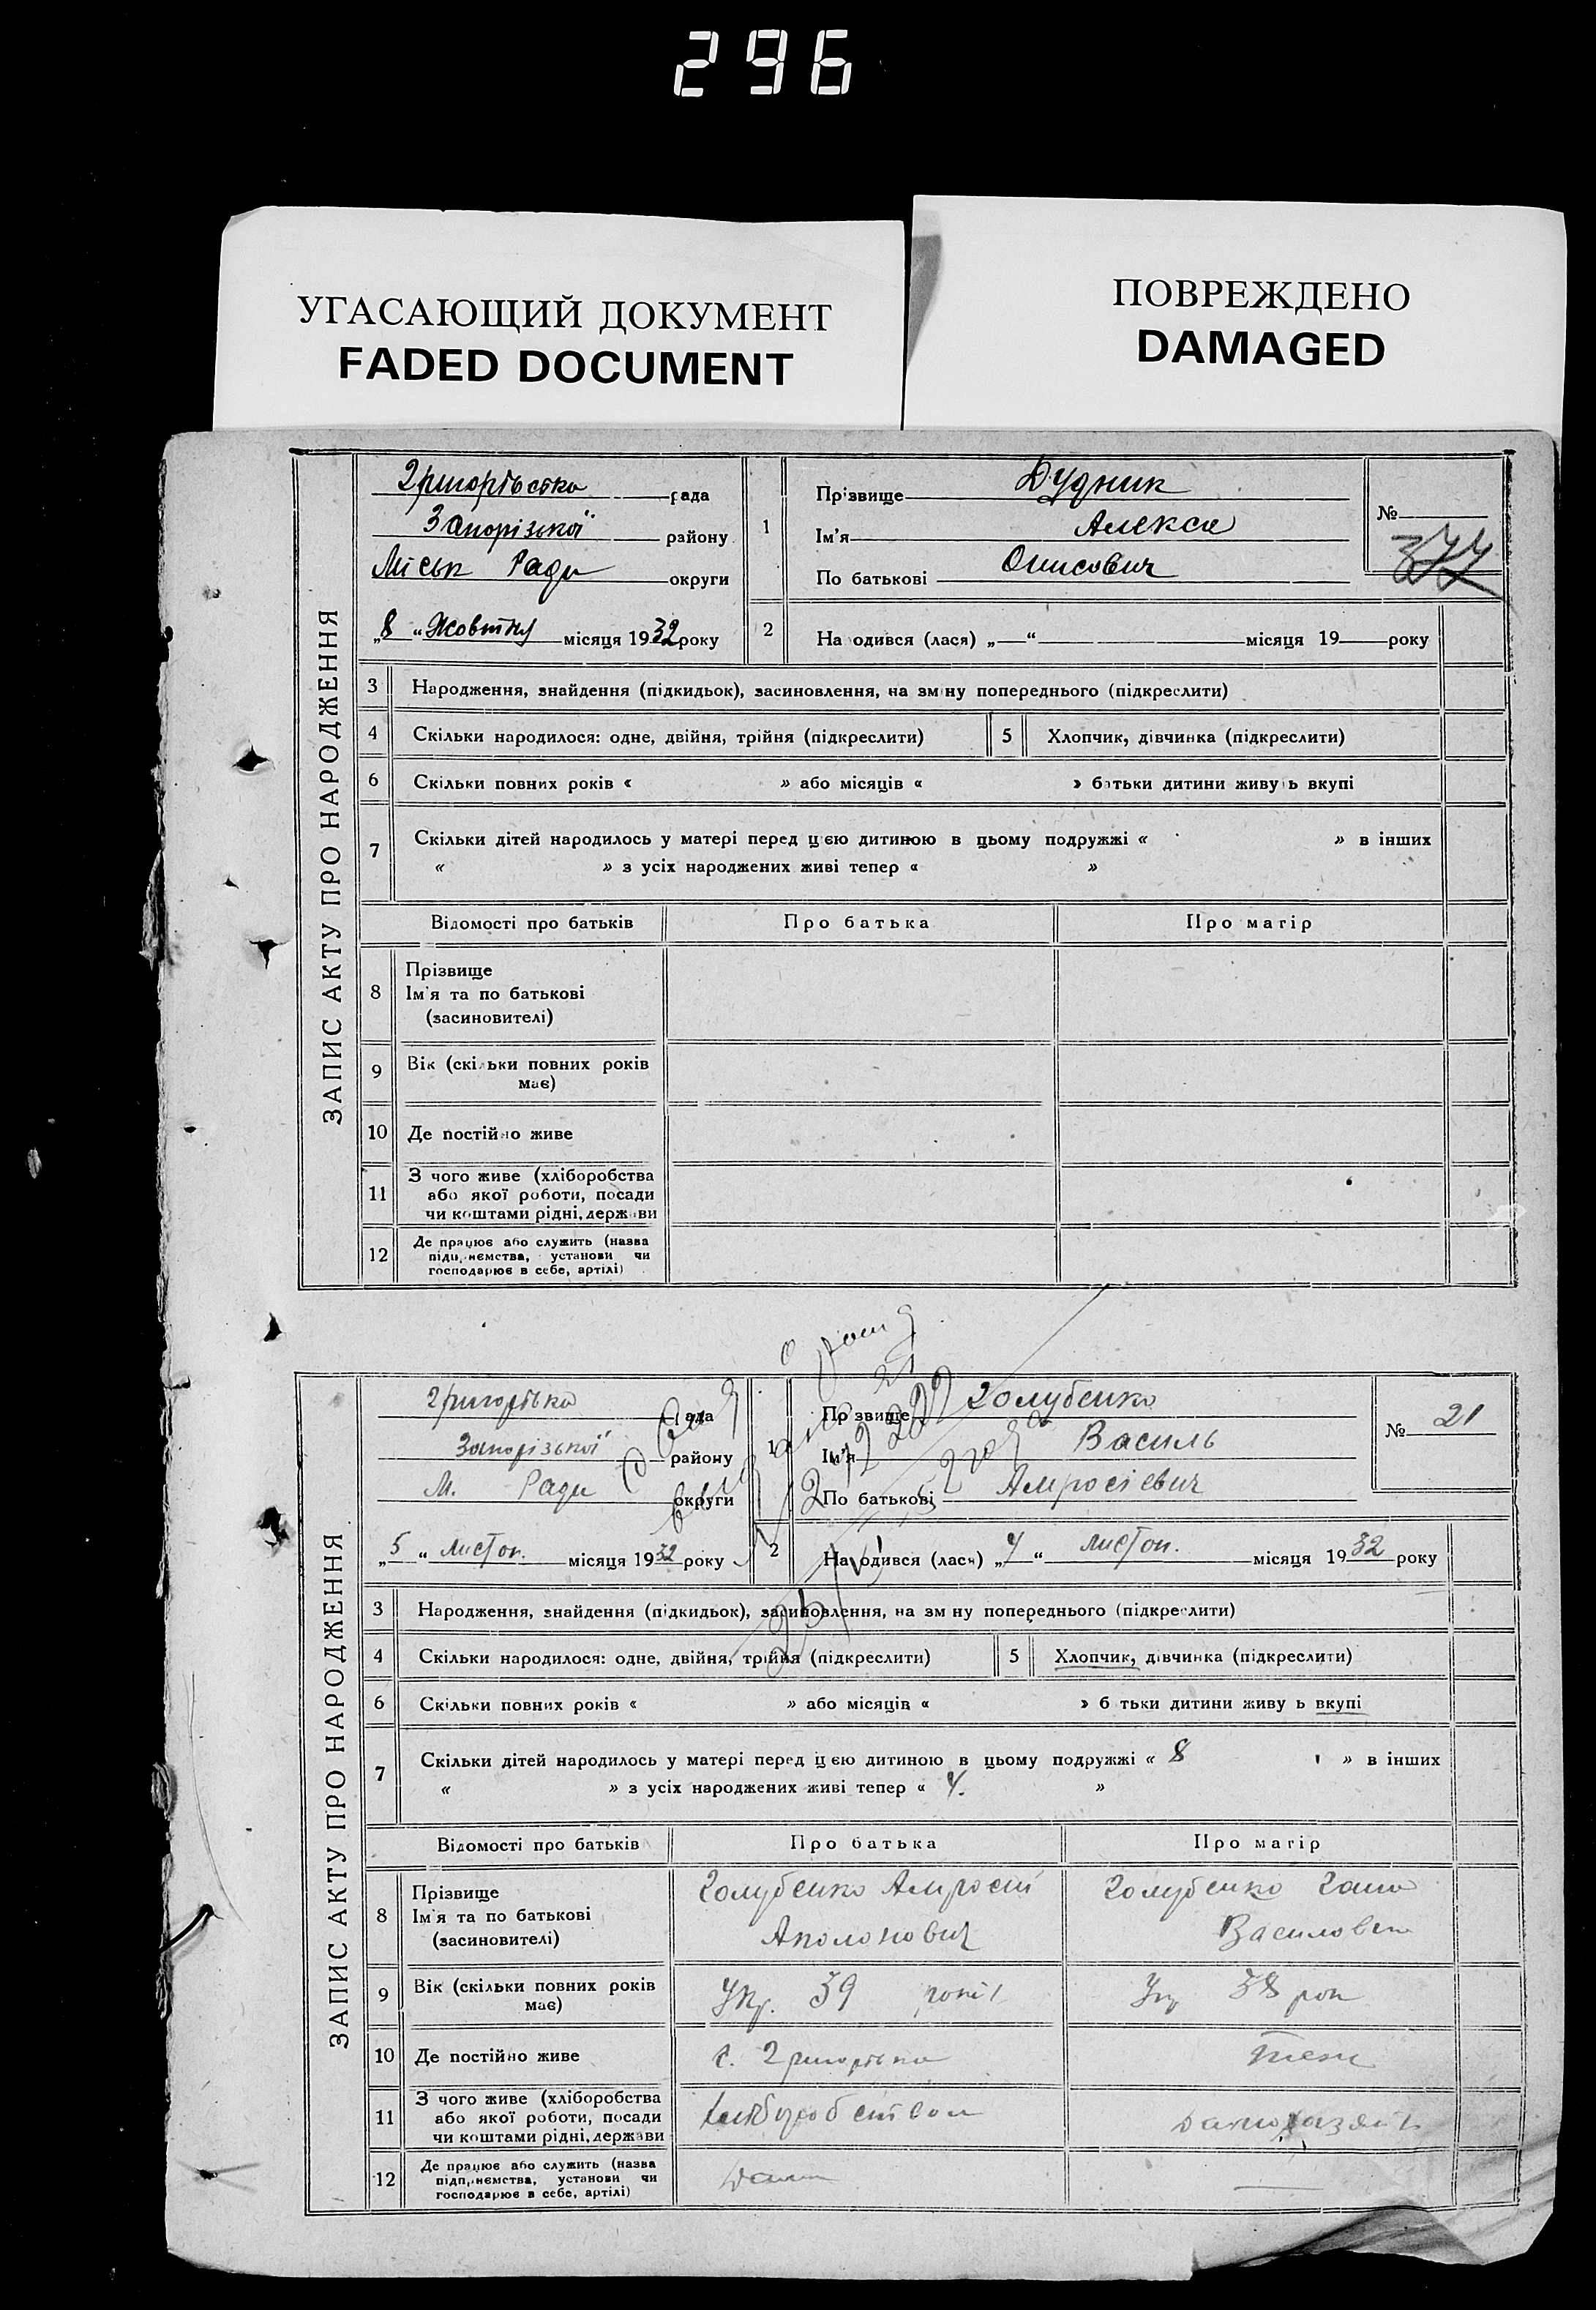 296
УГАСАЮЩИЙ ДОКУМЕНТ
FADED DOCUMENT
ПОВРЕЖДЕНО
DAMAGED
ЗАПИС АКТУ ПРО НАРОДЖЕННЯ
рада
Запорізької району
Міськ Ради округи
„8“ Жовтня місяця 1932 року
1
Прізвище Дудник
Ім'я Алекса
По батькові Онисович
№
377
2 Народився (лася) „—“ місяця 19 року
3 Народження, знайдення (підкидьок), засиновлення, на зміну попереднього (підкреслити)
4 Скільки народилося: одне, двійня, трійня (підкреслити) 5 Хлопчик, дівчинка (підкреслити)
6 Скільки повних років « » або місяців « » батьки дитини живуть вкупі
7 Скільки дітей народилось у матері перед цією дитиною в цьому подружжі « » в інших
« » з усіх народжених живі тепер « »
Відомості про батьків Про батька Про матір
8 Прізвище
Ім'я та по батькові
(засиновителі)
9 Вік (скільки повних років
має)
10 Де постійно живе
11 З чого живе (хліборобства
або якої роботи, посади
чи коштами рідні, держави
12 Де працює або служить (назва
підприємства, установи чи
господарює в себе, артілі)
ЗАПИС АКТУ ПРО НАРОДЖЕННЯ
рада
Запорізької району
М. Ради округи
„5“ листоп. місяця 1932 року
1
Прізвище Голубенко
Ім'я Василь
По батькові Амросієвич
№ 21
2 Народився (лася) „4“ листоп. місяця 1932 року
3 Народження, знайдення (підкидьок), засиновлення, на зміну попереднього (підкреслити)
4 Скільки народилося: одне, двійня, трійня (підкреслити) 5 Хлопчик, дівчинка (підкреслити)
6 Скільки повних років « » або місяців « » батьки дитини живуть вкупі
7 Скільки дітей народилось у матері перед цією дитиною в цьому подружжі « 8 » в інших
« » з усіх народжених живі тепер « 4. »
Відомості про батьків Про батька Про матір
8 Прізвище
Ім'я та по батькові
(засиновителі)
Голубенко Амросій
Аполонович
Голубенко
9 Вік (скільки повних років
має)
Укр. 39 років
Укр 38 рок
10 Де постійно живе
с.
теж
11 З чого живе (хліборобства
або якої роботи, посади
чи коштами рідні, держави
хліборобством
12 Де працює або служить (назва
підприємства, установи чи
господарює в себе, артілі)